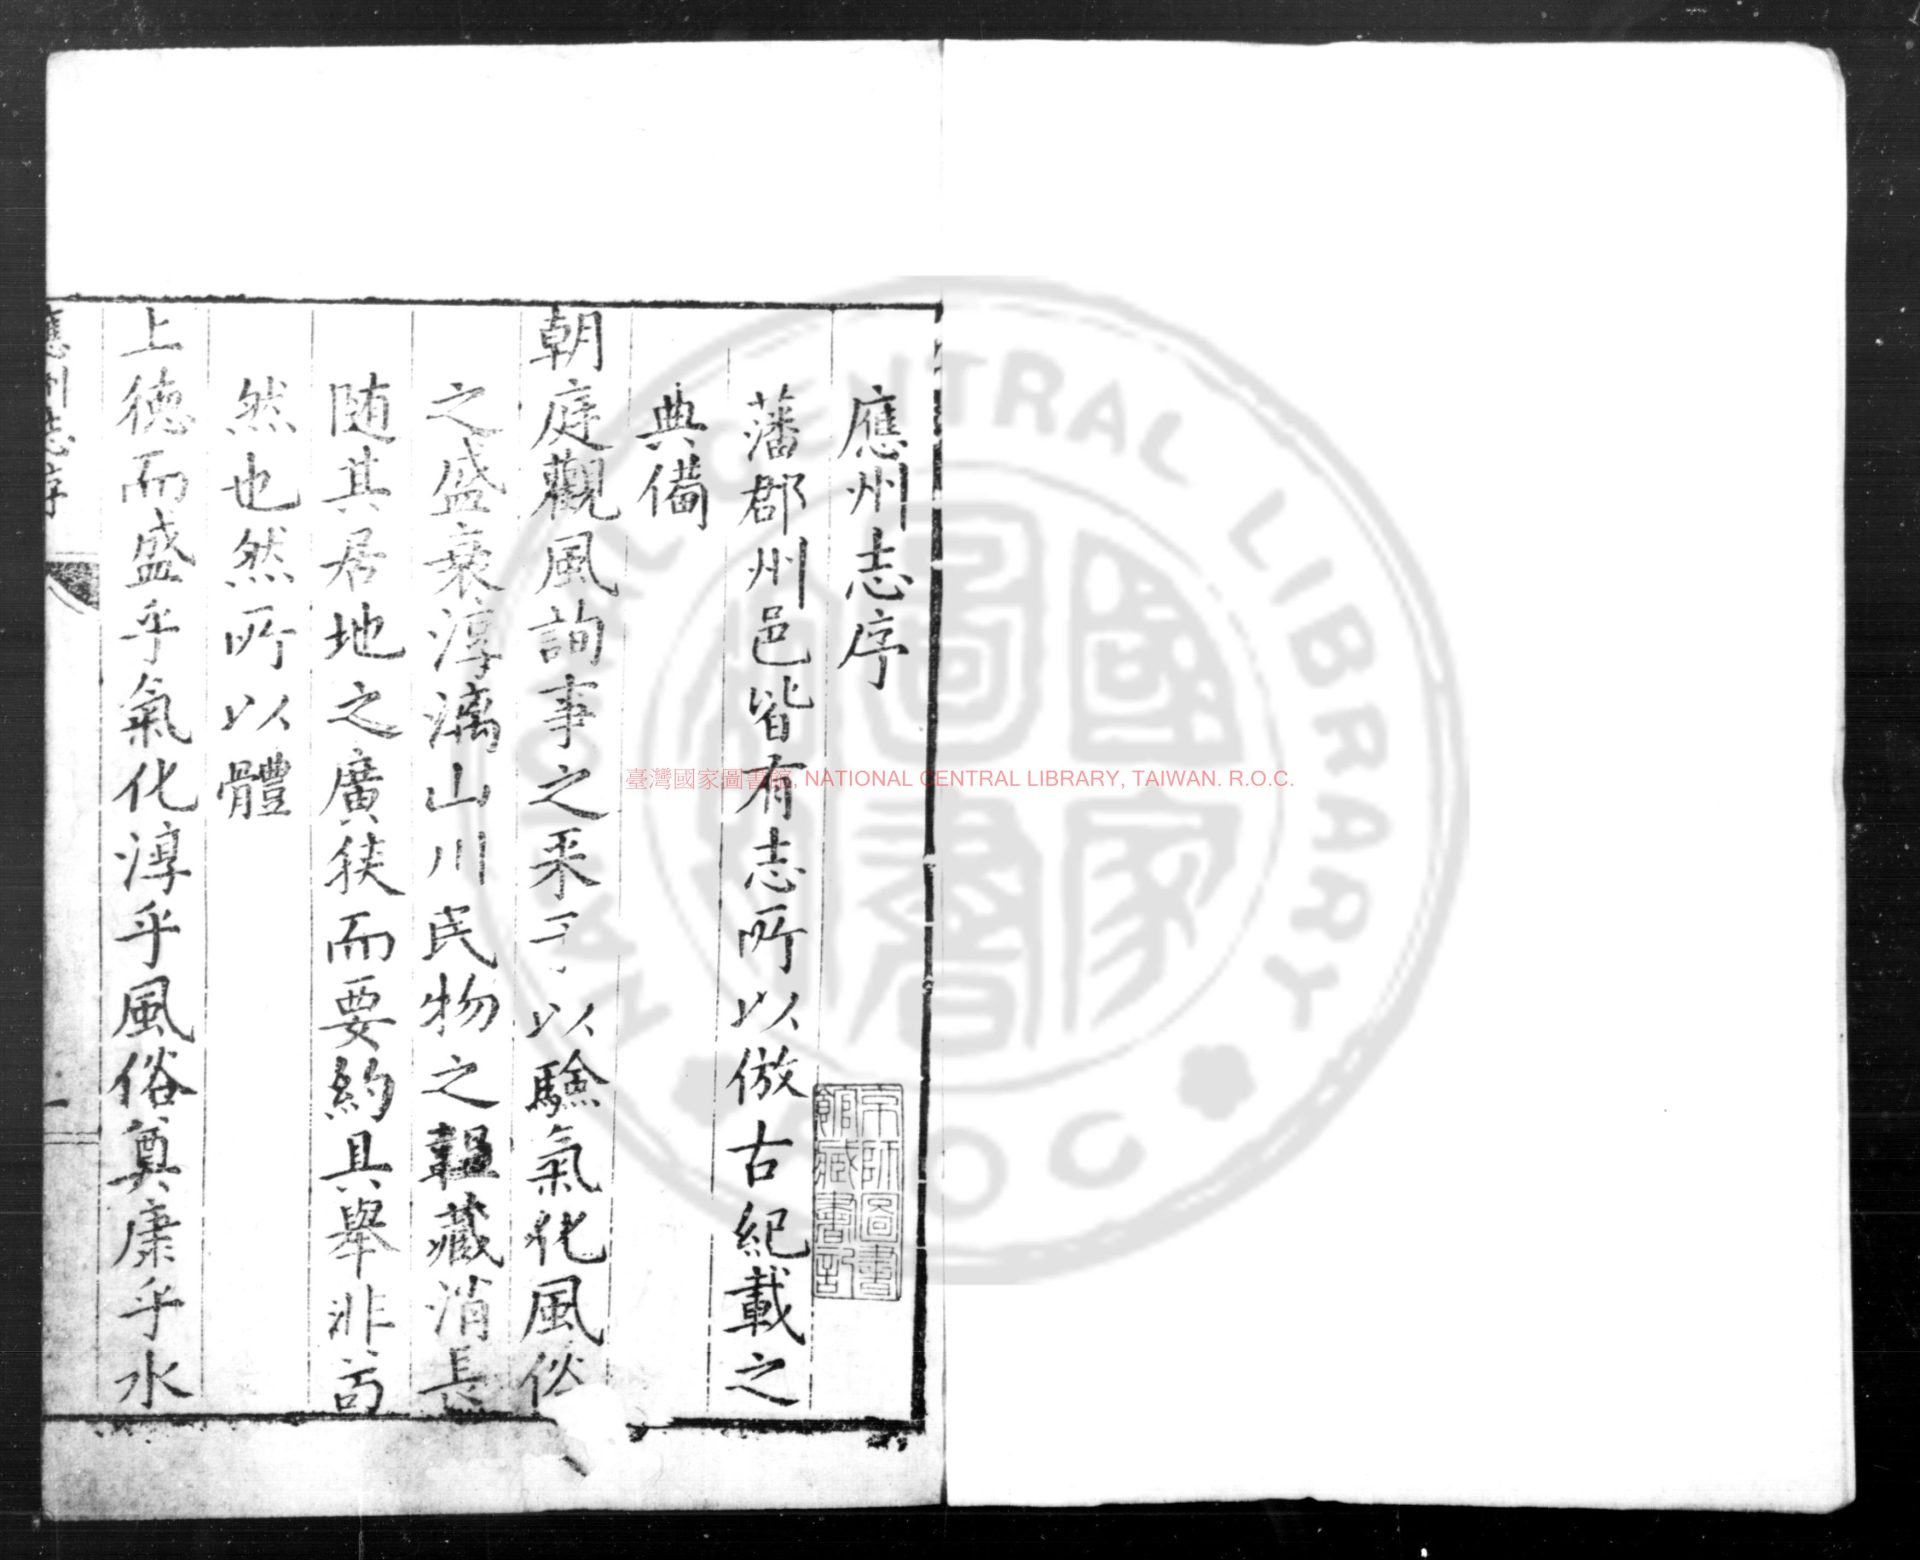 應州志序
藩郡州邑皆有志所以倣古紀載之
典備
朝庭觀風詢事之采 以驗氣化風俗
之盛衰淳漓山川民物之韞藏消長
随其居地之廣狹而要約具舉非苟
然也然所以體
上德而盛乎氣化淳乎風俗奠康乎水
應州志序
一
京師圖書
館藏書記
臺灣國家圖書館, NATIONAL CENTRAL LIBRARY, TAIWAN. R.O.C.
NATIONAL CENTRAL LIBRARY
R.O.C.
國家
圖書